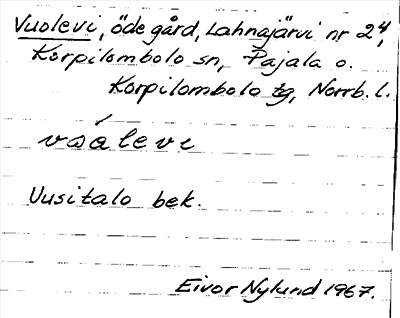 Vuolevi, öde gård, Lahnajärvi nr 24,
Korpilombolo sn, Pajala o.
Korpilombolo tg, Norrb. l.
Uusitalo bek.
Eivor Nylund 1967.